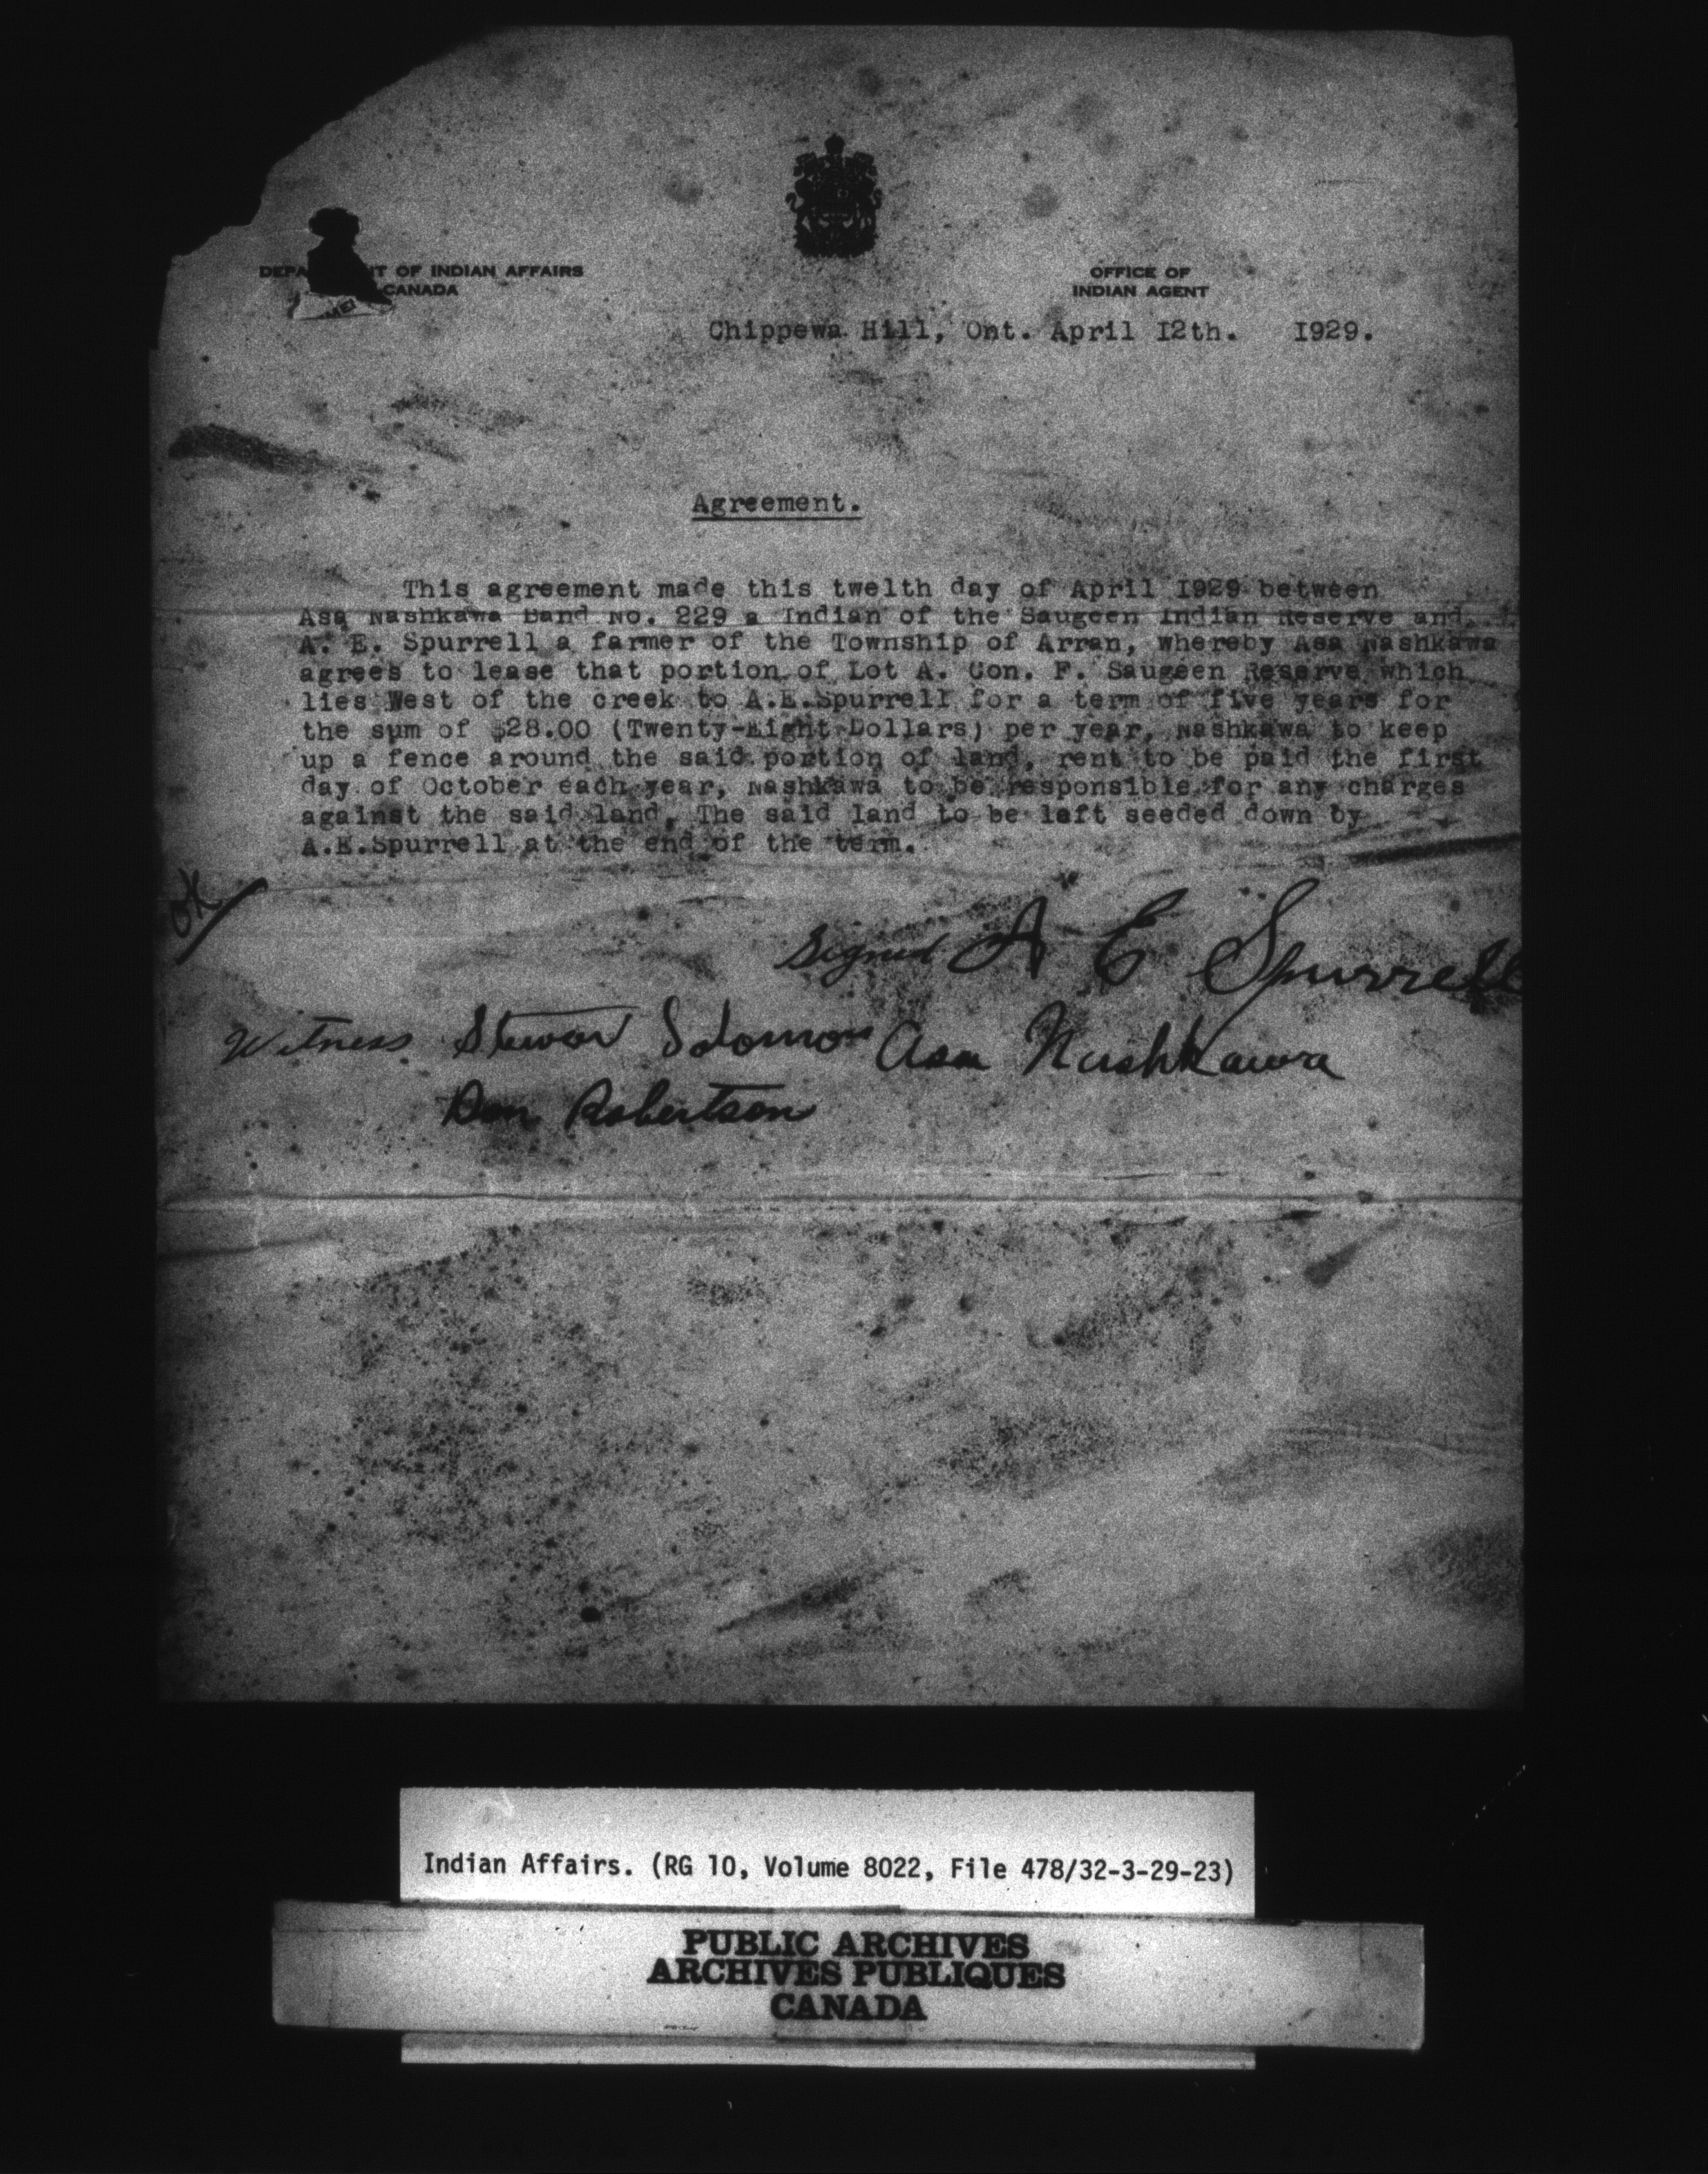 DEPA    T OF INDIAN AFFAIRS
CANADA
OFFICE OF
INDIAN AGENT
Chippewa Hill, Ont. April I2th. I929.
Agreement.
This agreement made this twelth day of April I929 between
Asa Nashkawa Band No. 229 a Indian of the Saugeen Indian Reserve and
A. E. Spurrell a farmer of the Township of Arran, whereby Asa Nashkawa
agrees to lease that portion of Lot A. Con. F. Saugeen Reserve which
lies West of the creek to A.E.Spurrell for a term of five years for
the sum of $28.00 (Twenty-Eight Dollars) per year, Nashkawa to keep
up a fence around the said portion of land, rent to be paid the first
day of October each year, Nashkawa to be responsible for any charges
against the said land. The said land to be left seeded down by
A.E.Spurrell at the end of the term.
OK
Signed A E Spurrell
Witness. Stewar Solomon Asa Nashkawa
Don Robertson
Indian Affairs. (RG 10, Volume 8022, File 478/32-3-29-23)
PUBLIC ARCHIVES
ARCHIVES PUBLIQUES
CANADA